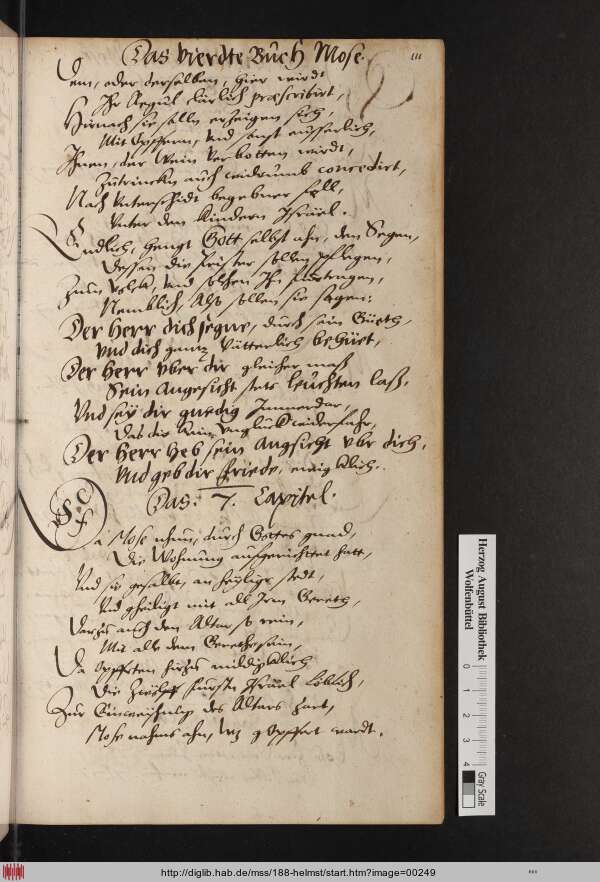 Das Vierdte Buch Mose.
111
Dem, oder derselben, hier wirdt
Ihr Regul klärlich præscribirt,
Hirnach sie solln erzeigen sich,
Mit Opffern, Und sonst eusserlich,
Ihnen, der Wein Verbotten wirdt,
Zutrincken auch widrumb concedirt,
Nach Unterschidt begebner fell,
Unter den Kindern Israel.
Endlich, hengt Gott selbst ahn, den Segen,
Dessen die Prister sollen pflegen,
Zum Volck, Und solchen Ihn
Nemblich, Also sollen sie sagen:
Der Herr dich segne, durch sein Güeth,
Und dich gantz Vätterlich behüet,
Der Herr Uber dir gleicher maß
Sein Angesicht stets leuchten laß,
Und seÿ dir gnedig Immerdar,
Das dir kein Unglück widerfahr,
Der Herr Heb sein Angsicht Ubr dich,
Und geb dir Friede, ewigklich.
Das. 7. Capitel.
Da Mose nhun, durch Gottes gnad,
Die Wohnung auffgerichtet hatt,
Und sie gesalbt, an heÿlige stedt,
Und gheiligt mit all Irm Gereth,
Darzu auch den Altar so rein,
Mit alle dem Gerethe sein,
Da Opfferten hirzu mildigklich
Die Zwölff Fürsten Israel löblich,
Zur Einweihung des Altars hart,
Mose nahms ahn, Wz gOpffert wardt.
Herzog August Bibliothek
Wolfenbüttel
0 1 2 3 4
Gray Scale
http://diglib.hab.de/mss/188-helmst/start.htm?image=00249